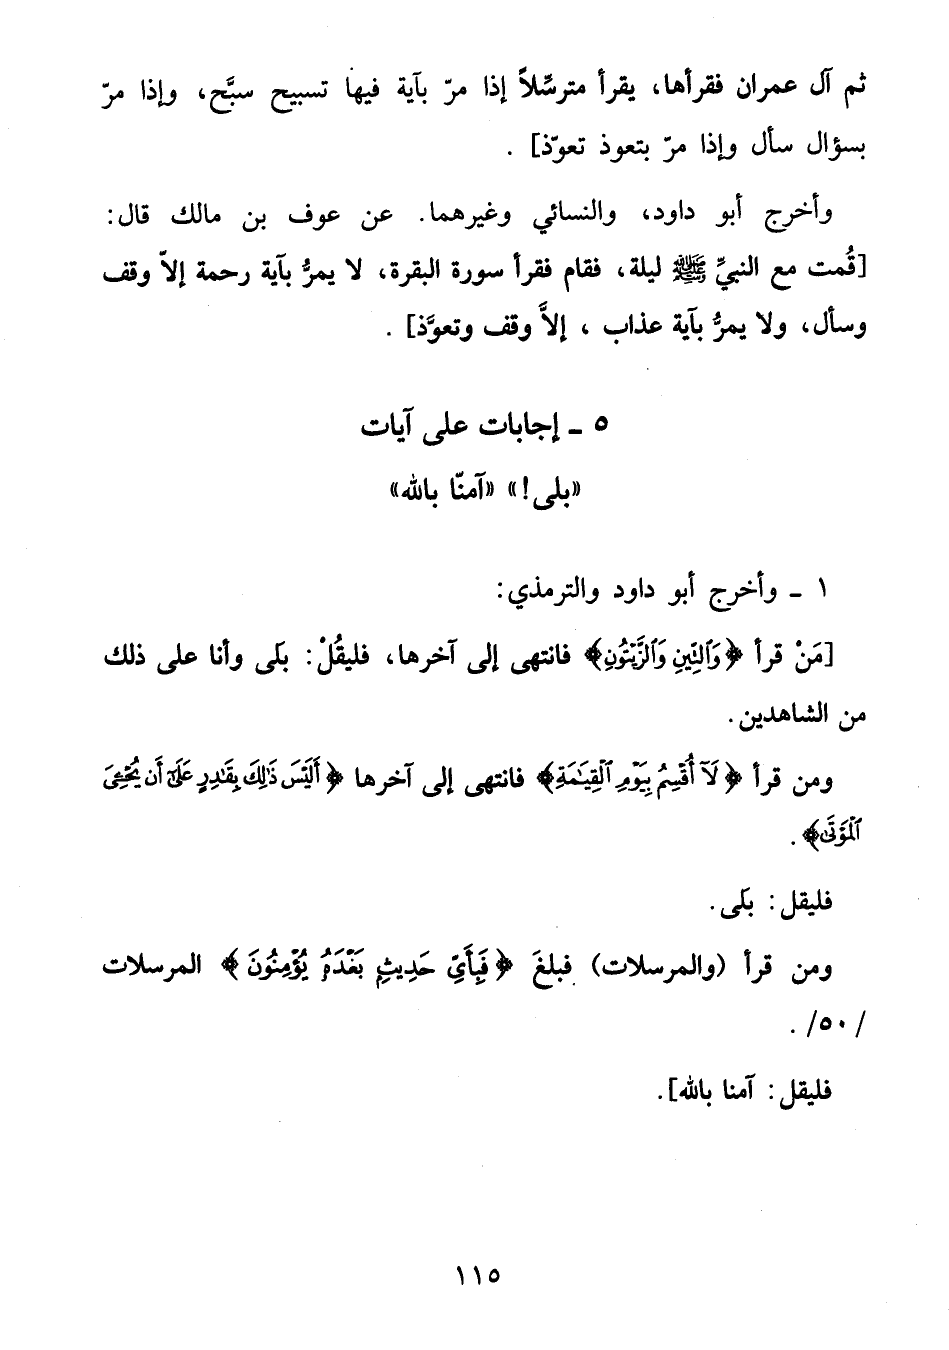 ثم آل عمران فقرأها، يقرأ مترسِّلاً إذا مرّ بآية فيها تسبيح سبَّح، وإذا مرّ
بسؤال سأل وإذا مرّ بتعوذ تعوّذ] .
وأخرج أبو داود، والنسائي وغيرهما. عن عوف بن مالك قال:
[قُمت مع النبيِّ ﷺ ليلة، فقام فقرأ سورة البقرة، لا يمرُّ بآية رحمة إلاّ وقف
وسأل، ولا يمرُّ بآية عذاب ، إلاَّ وقف وتعوَّذ] .
٥ ـ إجابات على آيات
«بلى!» «آمنّا بالله»
١ ـ وأخرج أبو داود والترمذي:
[مَنْ قرأ ﴿وَٱلتِّينِ وَٱلزَّيْتُونِ﴾ فانتهى إلى آخرها، فليقُلْ: بَلى وأنا على ذلك
من الشاهدين.
ومن قرأ ﴿لَآ أُقْسِمُ بِيَوْمِ ٱلْقِيَٰمَةِ﴾ فانتهى إلى آخرها ﴿أَلَيْسَ ذَٰلِكَ بِقَٰدِرٍ عَلَىٰٓ أَن يُحْۦِىَ
ٱلْمَوْتَىٰ﴾ .
فليقل: بَلى.
ومن قرأ (والمرسلات) فبلغَ ﴿فَبِأَيِّ حَدِيثٍۭ بَعْدَهُۥ يُؤْمِنُونَ﴾ المرسلات
/٥٠/ .
فليقل: آمنا بالله].
١١٥